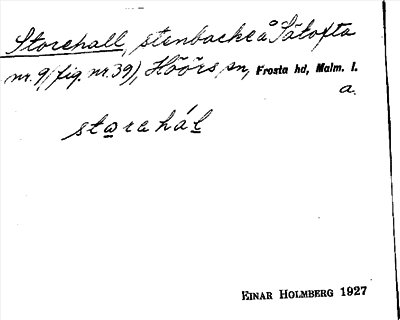 Storehall, stenbacke å Sätofta
nr. 9 (fig. nr. 39), Höörs sn, Frosta hd, Malm. l.
a.
storehál
EINAR HOLMBERG 1927